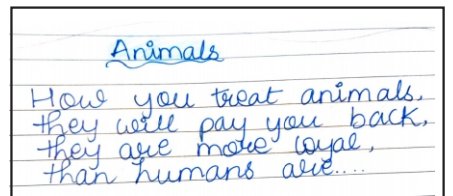 Animals
How you treat animals,
they will pay you back,
they are more loyal,
than humans are....